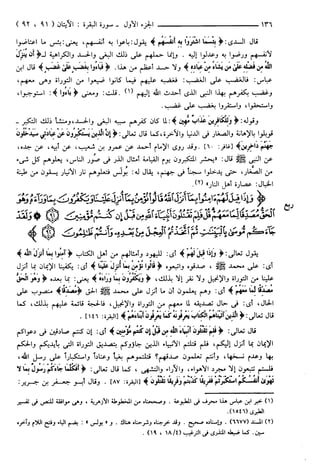 ١٣٦ ــــــــ الجزء الأول ـ سورة البقرة : الآيتان ( ٩١ ، ٩٢ )
قال السدي: ﴿ بِئْسَمَا اشْتَرَوْا بِهِ أَنفُسَهُمْ ﴾ يقول: باعوا به أنفسهم، يعني: بئس ما اعتاضوا
لأنفسهم ورضوا به وعدلوا إليه . وإنما حملهم على ذلك البغي والحسد والكراهية لـ﴿ أَن يُنَزِّلَ
اللَّهُ مِن فَضْلِهِ عَلَىٰ مَن يَشَاءُ مِنْ عِبَادِهِ ﴾ ولا حسد أعظم من هذا. ﴿ فَبَاءُوا بِغَضَبٍ عَلَىٰ غَضَبٍ ﴾ قال ابن
عباس: فالغضب على الغضب: فغضبه عليهم فيما كانوا ضيعوا من التوراة وهي معهم،
وغضب بكفرهم بهذا النبي الذي أحدث الله إليهم (١). قلت: ومعنى ﴿ بَاءُوا ﴾: استوجبوا،
واستحقوا، واستقروا بغضب على غضب.
وقوله: ﴿ وَلِلْكَافِرِينَ عَذَابٌ مُّهِينٌ ﴾: لما كان كفرهم سببه البغي والحسد، ومنشأ ذلك التكبر ـ
قوبلوا بالإهانة والصغار في الدنيا والآخرة، كما قال تعالى: ﴿ إِنَّ الَّذِينَ يَسْتَكْبِرُونَ عَنْ عِبَادَتِي سَيَدْخُلُونَ
جَهَنَّمَ دَاخِرِينَ ﴾ (غافر: ٦٠) . وقد روى الإمام أحمد عن عمرو بن شعيب، عن أبيه، عن جده،
عن النبي ﷺ قال: «يحشر المتكبرون يوم القيامة أمثال الذر في صُور الناس، يعلوهم كل شيء
من الصَّغار، حتى يدخلوا سجناً في جهنم، يقال له: بولس فتعلوهم نار الأنيار يسقون من طينة
الخبال: عصارة أهل النار» (٢).
﴿ وَإِذَا قِيلَ لَهُمْ ءَامِنُوا بِمَا أَنزَلَ اللَّهُ قَالُوا نُؤْمِنُ بِمَا أُنزِلَ عَلَيْنَا وَيَكْفُرُونَ بِمَا وَرَاءَهُ وَهُوَ
الْحَقُّ مُصَدِّقًا لِّمَا مَعَهُمْ قُلْ فَلِمَ تَقْتُلُونَ أَنبِيَاءَ اللَّهِ مِن قَبْلُ إِن كُنتُم مُّؤْمِنِينَ ۞ وَلَقَدْ
جَاءَكُم مُّوسَىٰ بِالْبَيِّنَاتِ ثُمَّ اتَّخَذْتُمُ الْعِجْلَ مِن بَعْدِهِ وَأَنتُمْ ظَالِمُونَ ۞ ﴾
ربع
يقول تعالى: ﴿ وَإِذَا قِيلَ لَهُمْ ﴾ أي: لليهود وأمثالهم من أهل الكتاب ﴿ آمِنُوا بِمَا أَنزَلَ اللَّهُ ﴾
أي: على محمد ﷺ ، صدقوه واتبعوه ﴿ قَالُوا نُؤْمِنُ بِمَا أُنزِلَ عَلَيْنَا ﴾ أي: يكفينا الإيمان بما أنزل
علينا من التوراة والإنجيل ولا نقر إلا بذلك، ﴿ وَيَكْفُرُونَ بِمَا وَرَاءَهُ ﴾ يعني: بما بعده ﴿ وَهُوَ الْحَقُّ
مُصَدِّقًا لِّمَا مَعَهُمْ ﴾ أي: وهم يعلمون أن ما أنزل على محمد ﷺ الحق ﴿ مُصَدِّقًا ﴾ منصوب على
الحال، أي: في حال تصديقه لما معهم من التوراة والإنجيل، فالحجة قائمة عليهم بذلك، كما
قال تعالى: ﴿ الَّذِينَ آتَيْنَاهُمُ الْكِتَابَ يَعْرِفُونَهُ كَمَا يَعْرِفُونَ أَبْنَاءَهُمْ ﴾ (البقرة: ١٤٦) .
قال تعالى: ﴿ فَلِمَ تَقْتُلُونَ أَنبِيَاءَ اللَّهِ مِن قَبْلُ إِن كُنتُم مُّؤْمِنِينَ ﴾ أي: إن كنتم صادقين في دعواكم
الإيمان بما أنزل إليكم، فلم قتلتم الأنبياء الذين جاؤوكم بتصديق التوراة التي بأيديكم والحكم
بها وعدم نسخها، وأنتم تعلمون صدقهم؟ قتلتموهم بغياً وعناداً واستكباراً على رسل الله،
فلستم تتبعون إلا مجرد الأهواء، والآراء والتشهي ، كما قال تعالى: ﴿ أَفَكُلَّمَا جَاءَكُمْ رَسُولٌ بِمَا لَا
تَهْوَىٰ أَنفُسُكُمُ اسْتَكْبَرْتُمْ فَفَرِيقًا كَذَّبْتُمْ وَفَرِيقًا تَقْتُلُونَ ﴾ (البقرة: ٨٧) . وقال أبو جعفر بن جرير:
(١) خبر ابن عباس هذا محرف في المطبوعة . وصححناه من المخطوطة الأزهرية ، وهي موافقة للنص في تفسير
الطبري (١٥٤٦).
(٢) المسند (٦٦٧٧) . وإسناده صحيح . وقد خرجناه وشرحناه هناك . و « بولس » : بضم الباء وفتح اللام وآخره
سين . كما ضبطه المنذري في الترغيب (٤ / ١٨ ، ١٩) .